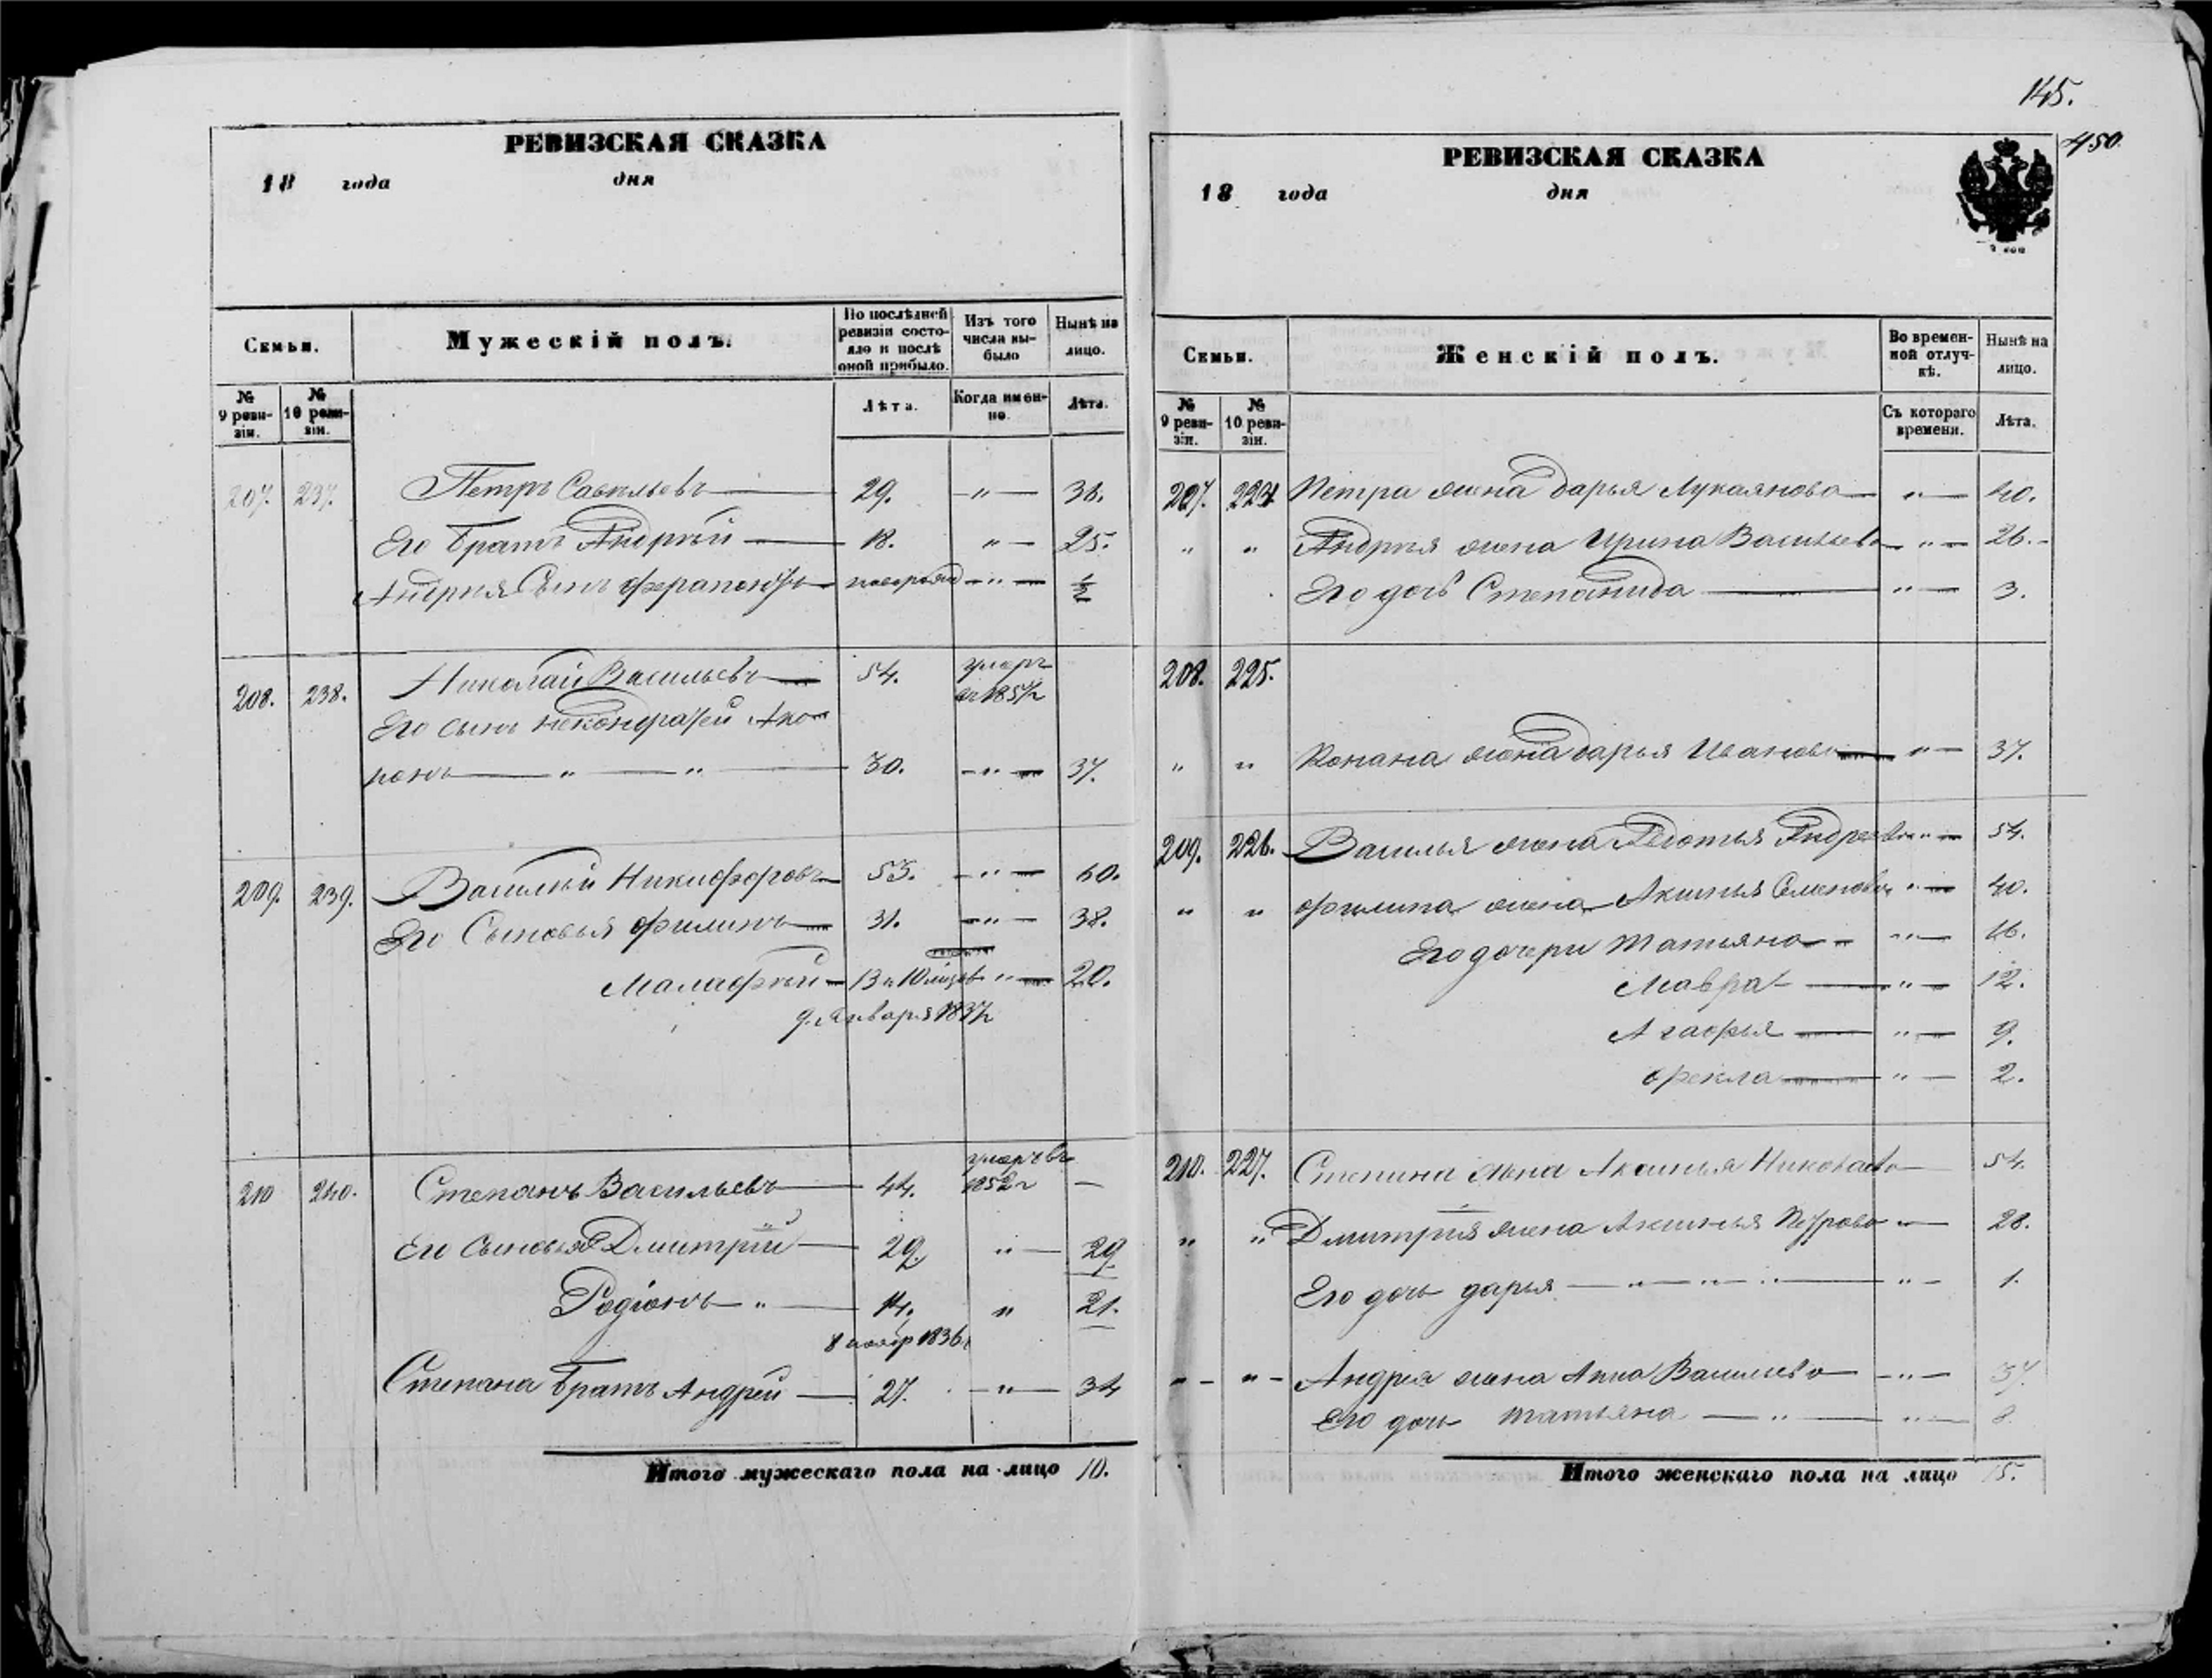 РЕВИЗСКАЯ СКАЗКА
18 года дня
Семьи.
Мужескій полъ.
По послѣдней ревизіи состояло и послѣ оной прибыло.
Изъ того числа выбыло
Нынѣ на лицо.
№ 9 ревизіи.
№ 10 ревизіи.
Лѣта.
Когда именно.
Лѣта.
207. 237. Петръ Савельевъ 29. —"— 36.
Его братъ Андрей 18. "— 25.
Андрея Сынъ Ферапонтъ —"— ½
208. 238. Николай Васильевъ 54. умеръ
Его сынъ
30. —"— 37.
209. 239. Василий Никифоровъ 53. —"— 60.
Его Сыновья Филипъ 31. —"— 38.
Малафей 13 и 10 "— 20.
9 Января 1837
210 240. Степанъ Васильевъ 44. умеръ въ 1852 —
Его Сыновья Дмитрій 29. "— 29.
Родіонъ —"— 14. " 21.
8 нояб 1836
Степана братъ Андрей 27. —"— 34
Итого мужескаго пола на лицо 10.
145.
450.
РЕВИЗСКАЯ СКАЗКА
18 года дня
Семьи.
Женскій полъ.
Во временной отлучкѣ.
Нынѣ на лицо.
№ 9 ревизіи.
№ 10 ревизіи.
Съ котораго времени.
Лѣта.
207. 224 Петра жена Дарья Лукаянова "— 40.
" " Андрея жена Ирина Васильева "— 26.
Его дочь Степанида "— 3.
208. 225.
" " Конана жена Дарья Иванова "— 37.
209. 226. Василья жена Авдотья Андреева "— 54.
" " Филипа жена Акинья Семенова "— 40.
Его дочери Татьяна "— 16.
Мавра "— 12.
Агафья "— 9.
Фекла "— 2.
210. 227. Степана жена Николаева — 54.
" " Дмитрія жена Акинья Петрова — 28.
Его дочь Дарья "— 1.
" " Андрея жена Анна Васильева —"— 37.
Его дочь Татьяна —"— "— 8.
Итого женскаго пола на лицо 15.